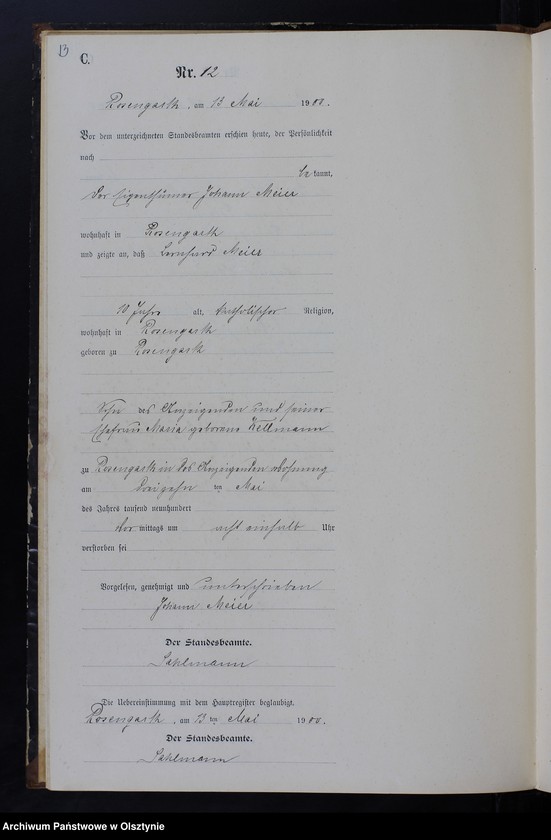 13
C.
Nr. 12
Rosengarth, am 13 Mai 1900.
Vor dem unterzeichneten Standesbeamten erschien heute, der Persönlichkeit
nach
be kannt,
der Eigenthümer Johann Meier
wohnhaft in Rosengarth
und zeigte an, daß Bernhard Meier
10 Jahre alt, katholischer Religion,
wohnhaft in Rosengarth
geboren zu Rosengarth
Sohn des Anzeigenden und seiner
Ehefrau Maria geborene
zu Rosengarth in des Anzeigenden Wohnung
am dreizehn ten Mai
des Jahres tausend neunhundert
Vor mittags um acht einhalb Uhr
verstorben sei
Vorgelesen, genehmigt und unterschrieben
Johann Meier
Der Standesbeamte.
Sahlmann
Die Uebereinstimmung mit dem Hauptregister beglaubigt.
Rosengarth, am 13 ten Mai 1900.
Der Standesbeamte.
Sahlmann
Archiwum Państwowe w Olsztynie